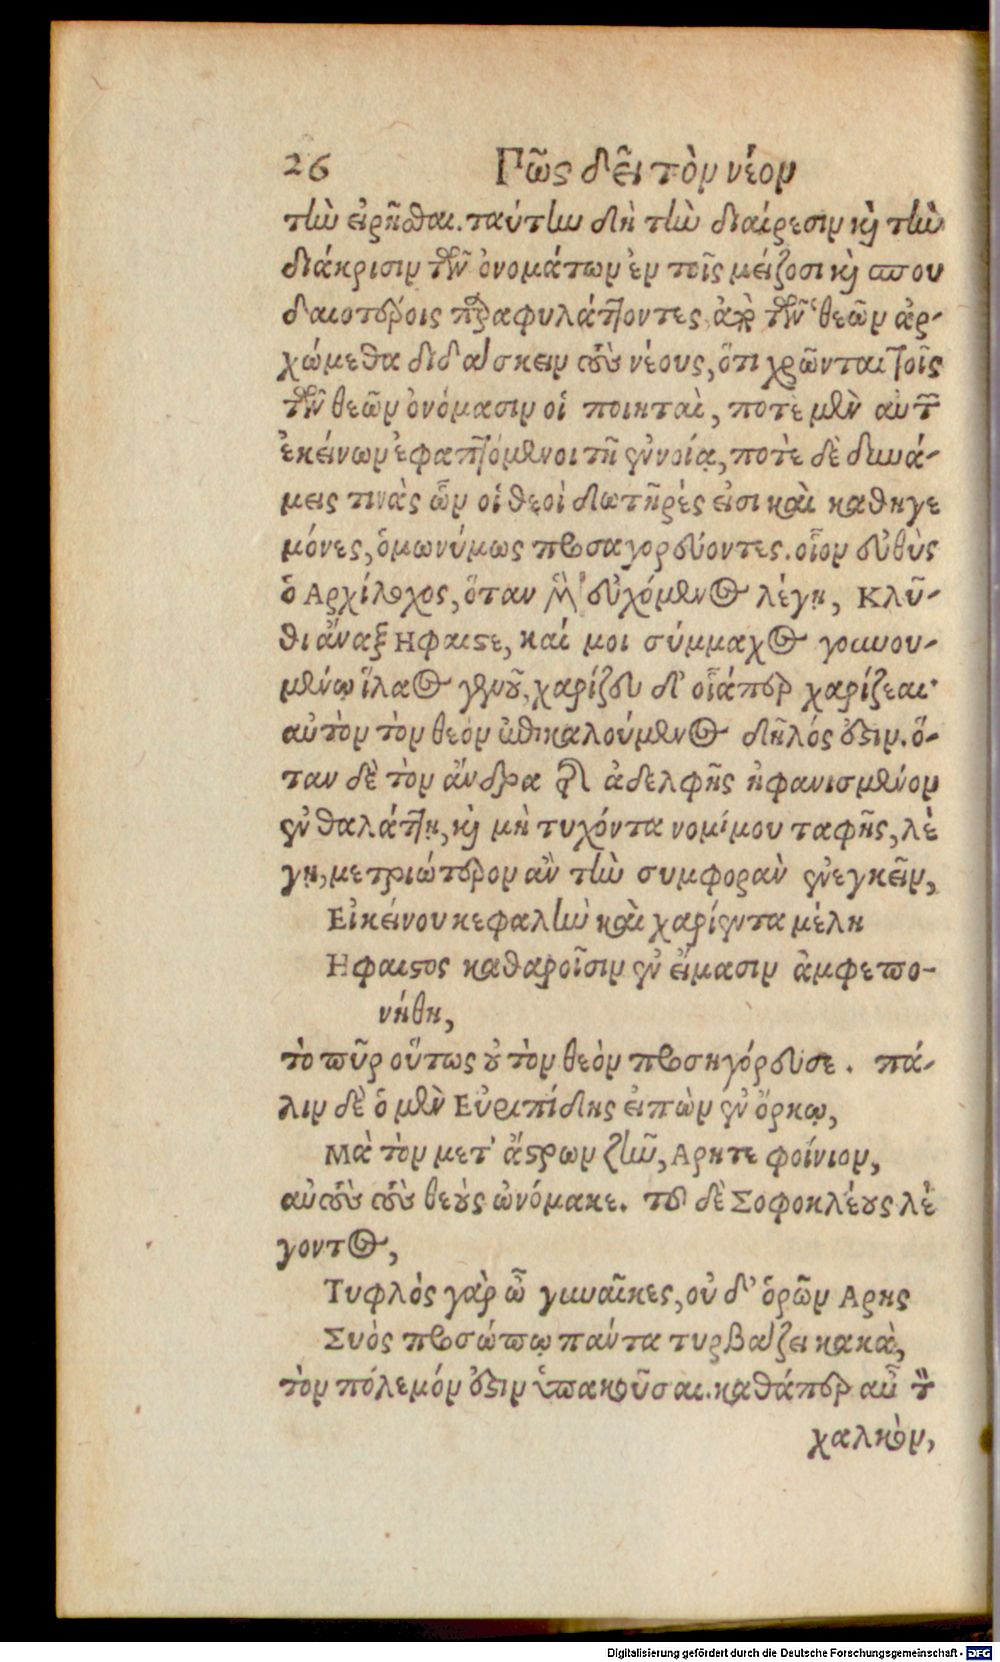 26 Πῶς δεῖ τὸν νέον
τὴν εἰρῆσθαι. ταύτην δὴ τὴν διαίρεσιν καὶ τὴν
διάκρισιν τῶν ὀνομάτων ἐν τοῖς μείζοσι καὶ σπου
δαιοτέροις παραφυλάττοντες ἀπὸ τῶν θεῶν ἀρ-
χώμεθα διδάσκειν τοὺς νέους, ὅτι χρῶνται τοῖς
τῶν θεῶν ὀνόμασιν οἱ ποιηταὶ, ποτὲ μὲν αὐτῶν
ἐκείνων ἐφαπτόμενοι τῇ ἐννοίᾳ, ποτὲ δὲ δυνά-
μεις τινὰς ὧν οἱ θεοὶ δωτῆρές εἰσι καὶ καθηγε
μόνες, ὁμωνύμως προσαγορεύοντες. οἷον εὐθὺς
ὁ Αρχίλοχος, ὅταν μὲν εὐχόμενος λέγῃ, Κλῦ-
θι ἄναξ Ηφαιστε, καί μοι σύμμαχος γουνου-
μένῳ ἵλαος γενοῦ, χαρίζου δ' οἷάπερ χαρίζεαι·
αὐτὸν τὸν θεὸν ἐπικαλούμενος δῆλός ἐστιν. ὅ-
ταν δὲ τὸν ἄνδρα τῆς ἀδελφῆς ἠφανισμένον
ἐν θαλάττῃ, καὶ μὴ τυχόντα νομίμου ταφῆς, λέ
γῃ, μετριώτερον ἂν τὴν συμφορὰν ἐνεγκεῖν,
Εἰ κείνου κεφαλὴν καὶ χαρίεντα μέλη
Ηφαιστος καθαροῖσιν ἐν εἵμασιν ἀμφεπο-
νήθη,
τὸ πῦρ οὕτως οὐ τὸν θεὸν προσηγόρευσε. πά-
λιν δὲ ὁ μὲν Εὐριπίδης εἰπὼν ἐν ὅρκῳ,
Μὰ τὸν μετ' ἄστρων ζῆν, Αρητε φοίνιον,
αὐτοὺς τοὺς θεοὺς ὠνόμακε. τοῦ δὲ Σοφοκλέους λέ
γοντος,
Τυφλὸς γὰρ ὦ γυναῖκες, οὐ δ' ὁρῶν Αρης
Συὸς προσώπῳ πάντα τυρβάζει κακὰ,
τὸν πόλεμόν ἐστιν ὑπακοῦσαι. καθάπερ αὖ τὸν
χαλκὸν,
Digitalisierung gefördert durch die Deutsche Forschungsgemeinschaft - DFG